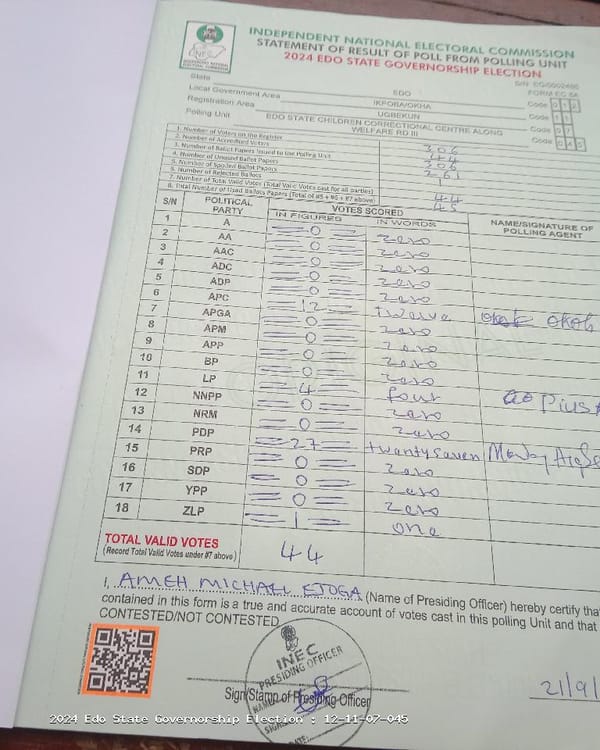 INDEPENDENT NATIONAL ELECTORAL COMMISSION
STATEMENT OF RESULT OF POLL FROM POLLING UNIT
2024 EDO STATE GOVERNORSHIP ELECTION
FORM EC 8A
State EDO Code 012
Local Government Area IKPOBA/OKHA Code 11
Registration Area UGBEKUN Code 07
Polling Unit EDO STATE CHILDREN CORRECTIONAL CENTRE ALONG WELFARE RD III Code 045
1. Number of Voters on the Register 306
2. Number of Accredited Voters 44
3. Number of Ballot Papers Issued to the Polling Unit 306
4. Number of Unused Ballot Papers 261
5. Number of Spoiled Ballot Papers 1
6. Number of Rejected Ballots
7. Number of Total Valid Votes (Total Valid Votes cast for all parties) 44
8. Total Number of Used Ballots Papers (Total of #5 + #6 + #7 above) 45
S/N POLITICAL PARTY VOTES SCORED NAME/SIGNATURE OF POLLING AGENT
IN FIGURES IN WORDS
1 A 0 Zero
2 AA 0 Zero
3 AAC 0 Zero
4 ADC 0 Zero
5 ADP 0 Zero
6 APC 12 twelve Okoh
7 APGA 0 Zero
8 APM 0 Zero
9 APP 0 Zero
10 BP 0 Zero
11 LP 4 four Pius
12 NNPP 0 Zero
13 NRM 0 Zero
14 PDP 27 twentyseven
15 PRP 0 Zero
16 SDP 0 Zero
17 YPP 0 Zero
18 ZLP 1 one
TOTAL VALID VOTES 44
(Record Total Valid Votes under #7 above)
I, AMEH MICHAEL EJOGA (Name of Presiding Officer) hereby certify that
contained in this form is a true and accurate account of votes cast in this polling Unit and that
CONTESTED/NOT CONTESTED
INEC
PRESIDING OFFICER
Sign/Stamp of Presiding Officer
21/9/
2024 Edo State Governorship Election : 12-11-07-045